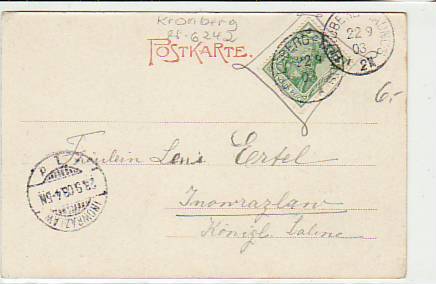 Kronberg
6242
POSTKARTE.
22 9
03
22 9
2N
6.-
Fräulein Leni Ertel
Inowrazlaw
Königl. Saline
INOWRAZLAW
23.9.03.4-5N